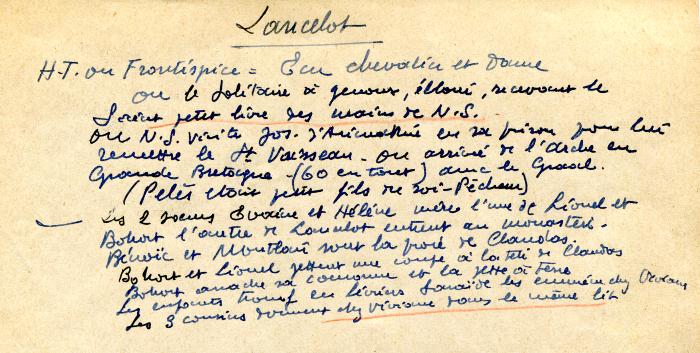 Lancelot
H-T. ou Frontispice = Ecu chevalier et Dame
ou le solitaire à genoux, ébloui, recevant le
Saint petit livre des mains de N.S.
ou N.S. visite Jos. d'Arimathie en sa prison pour lui
remettre le St Vaisseau - ou arrivée de l'arche en
Grande Bretagne - (60 en tout) avec le Graal.
(Pelès était petit fils de roi-Pêcheur)
Les 2 soeurs Evaine et Hélène mère l'une de Lionel et
Bohort l'autre de Lancelot entrent au monastère.
Bénoïc et Montlair sont la proie de Claudas.
Bohort et Lionel jettent une coupe à la tête de Claudas
Bohort arrache sa couronne et la jette à terre
Les enfants transf en lévriers Saraïde les emmène chez Viviane
Les 3 cousins dorment chez Viviane dans le même lit